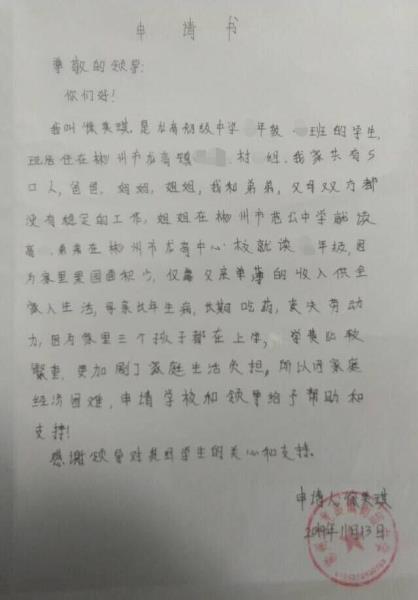 申请书
尊敬的领导:
你们好!
我叫徐美琪,是龙市初级中学 年级 班的学生,
现居住在郴州市龙市镇 村 组,我家共有5
口人,爸爸,妈妈,姐姐,我和弟弟,父母双方都
没有稳定的工作,姐姐在郴州市 中学就读
高 ,弟弟在郴州市龙市中心校就读 年级,因
为家里 面积少,仅靠父亲单薄的收入供全
家人生活,母亲长年生病,长期吃药,丧失劳动
力,因为家里三个孩子都在上学, 学费
繁重,更加剧了家庭生活负担,所以因家庭
经济困难,申请学校和领导给予帮助和
支持!
感谢领导对贫困学生的关心和支持。
申请人:徐美琪
2019年11月13日